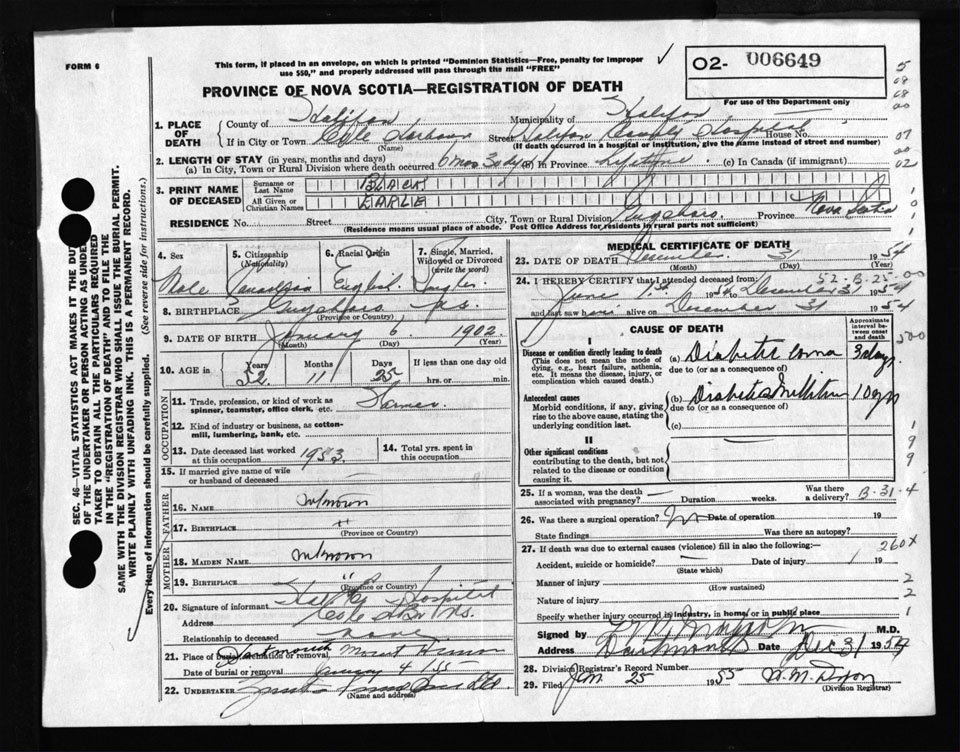 FORM 6
This form, if placed in an envelope, on which is printed "Dominion Statistics—Free, penalty for improper
use $50," and properly addressed will pass through the mail "FREE"
O2- 006649
For use of the Department only
PROVINCE OF NOVA SCOTIA—REGISTRATION OF DEATH
1. PLACE OF DEATH
County of Halifax Municipality of Halifax
If in City or Town Cole Harbour Street Halifax County Hospital House No.
(Name) (If death occurred in a hospital or institution, give the name instead of street and number)
2. LENGTH OF STAY (in years, months and days)
(a) In City, Town or Rural Division where death occurred 6 mos 30 dys (b) In Province Lifetime (c) In Canada (if immigrant)
3. PRINT NAME OF DECEASED
Surname or Last Name BLACK
All Given or Christian Names EARLE
RESIDENCE No. Street City, Town or Rural Division Guysboro Province Nova Scotia
(Residence means usual place of abode. Post Office Address for residents in rural parts not sufficient)
4. Sex 5. Citizenship (Nationality) 6. Racial Origin 7. Single, Married, Widowed or Divorced (write the word)
Male Canadian English Single
8. BIRTHPLACE Guysboro N.S.
(Province or Country)
9. DATE OF BIRTH January 6 1902
(Month) (Day) (Year)
10. AGE in Years Months Days If less than one day old
52 11 25 hrs. or min.
OCCUPATION
11. Trade, profession, or kind of work as spinner, teamster, office clerk, etc.
12. Kind of industry or business, as cotton-mill, lumbering, bank, etc.
13. Date deceased last worked at this occupation 1953
14. Total yrs. spent in this occupation
15. If married give name of wife or husband of deceased
FATHER
16. NAME unknown
17. BIRTHPLACE "
MOTHER
18. MAIDEN NAME unknown
19. BIRTHPLACE "
(Province or Country)
20. Signature of informant Hospital
Address Cole Hbr N.S.
Relationship to deceased none
21. Place of burial, cremation or removal Dartmouth Mount Hermon
Date of burial or removal January 4 1955
22. UNDERTAKER
(Name and address)
MEDICAL CERTIFICATE OF DEATH
23. DATE OF DEATH December 31 1954
(Month) (Day) (Year)
24. I HEREBY CERTIFY that I attended deceased from: 52-B-25-00
June 1st 1954 to December 31 1954
and last saw h alive on December 31 1954
CAUSE OF DEATH
Approximate interval between onset and death
I
Disease or condition directly leading to death
(This does not mean the mode of dying, e.g., heart failure, asthenia, etc. It means the disease, injury, or complication which caused death.)
(a) Diabetic Coma 3 days
due to (or as a consequence of)
Antecedent causes
Morbid conditions, if any, giving rise to the above cause, stating the underlying condition last.
(b) Diabetes Mellitus 10 yrs
due to (or as a consequence of)
(c)
II
Other significant conditions
contributing to the death, but not related to the disease or condition causing it.
25. If a woman, was the death associated with pregnancy? — Duration weeks. Was there a delivery? B-31-4
26. Was there a surgical operation? No Date of operation 19
State findings Was there an autopsy?
27. If death was due to external causes (violence) fill in also the following:—
260X
Accident, suicide or homicide? Date of injury 19
(State which)
Manner of injury
(How sustained)
Nature of injury
Specify whether injury occurred in industry, in home, or in public place
Signed by M.D.
Address Dartmouth Date Dec 31 1954
28. Division Registrar's Record Number
29. Filed Jan 25 1955
(Division Registrar)
SEC. 46—VITAL STATISTICS ACT MAKES IT THE DUTY
OF THE UNDERTAKER OR PERSON ACTING AS UNDERTAKER
TO OBTAIN ALL THE PARTICULARS REQUIRED
IN THE "REGISTRATION OF DEATH" AND TO FILE THE
SAME WITH THE DIVISION REGISTRAR WHO SHALL ISSUE THE BURIAL PERMIT.
WRITE PLAINLY WITH UNFADING INK. THIS IS A PERMANENT RECORD.
Every item of information should be carefully supplied. (See reverse side for instructions.)